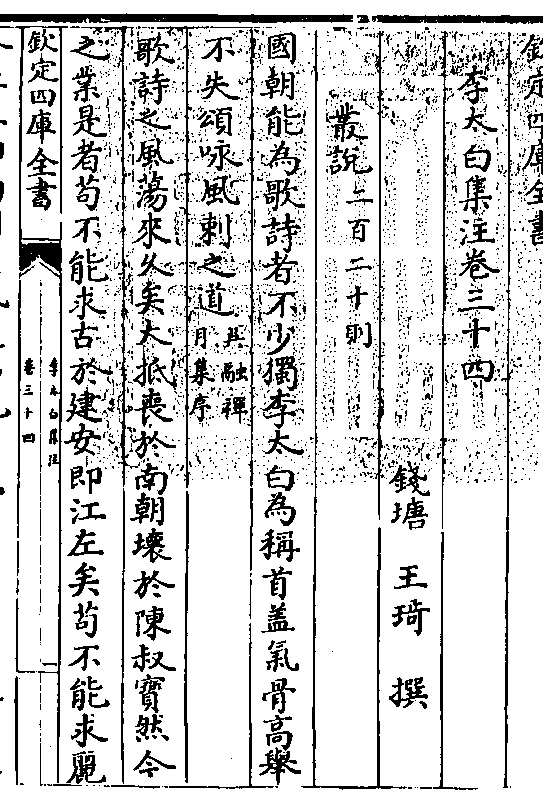 欽定四庫全書
李太白集注卷三十四
錢塘 王琦 撰
叢說二百二十則
國朝能為歌詩者不少獨李太白為稱首蓋氣骨高舉
不失頌咏風刺之道吳融禪月集序
歌詩之風蕩來久矣大抵喪於南朝壞於陳叔寶然今
之業是者苟不能求古於建安即江左矣苟不能求麗
欽定四庫全書
李太白集注
卷三十四
一